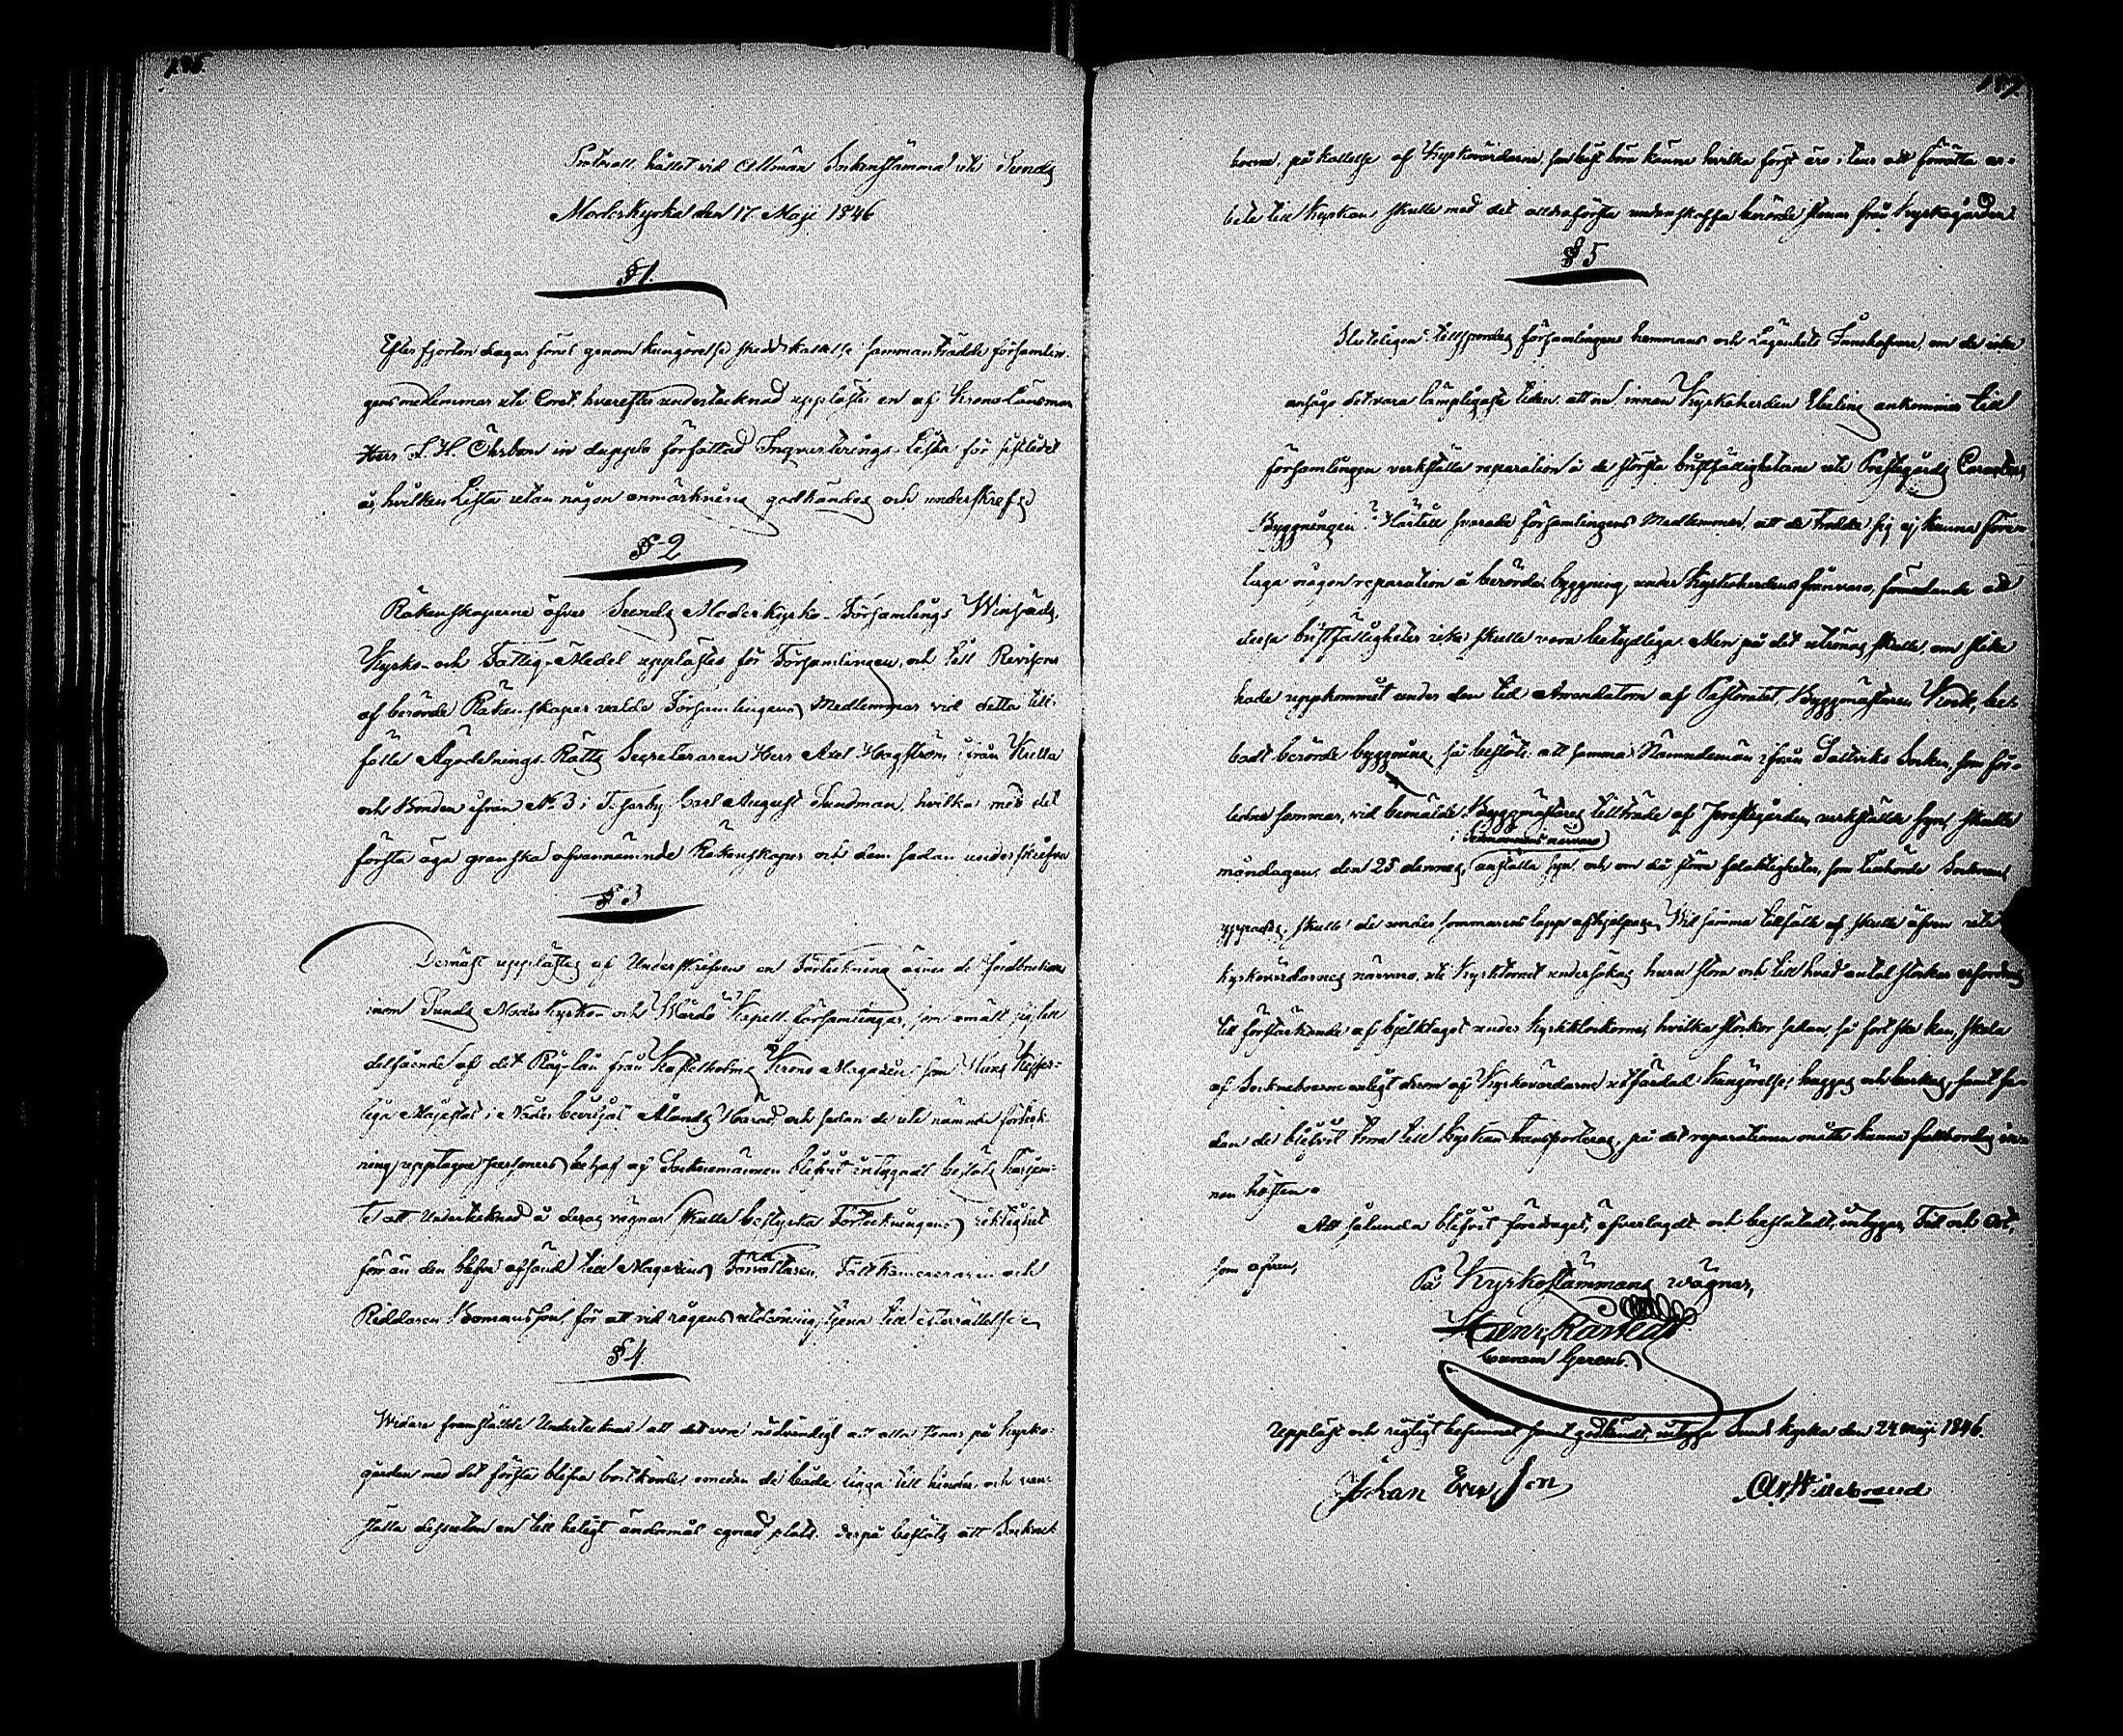 186.
Protocoll, hållet vid Allmän Sockenstämma uti Sunds
Moderkyrka den 17 Maji 1846
§ 1.
Efter fjorton dagar förut genom kungörelse skedd kallelse sammanträdde församlin-
gens medlemmar uti Coret, hvarefter undertecknad upplästes en af Krono Länsman
Herr L. H. Öhrbom in duplo författad Inqvarterings-Lista för sistledet
år, hvilken Lista utan någon anmärkning godkändes och underskrefs
§ 2
Räkenskaperne öfver Sunds Moderkyrko-Församlings Winsäds,
Kyrko- och Fattig-Medel upplästes för Församlingen, och till Revision
af berörde Räkenskaper valde Församlingens Medlemmar vid detta till-
fälle Ägodelnings-Rätts Secreteraren Herr Axel Hagström ifrån Kulla
och Bonden ifrån No 3 i Tosarby Carl August Sundman, hvilka med det
första äga granska ofvannämnde Räkenskaper och dem sedan underskrifva
§ 3
Dernäst upplästes af Underskrifven en Förteckning öfver de Jordbrukare
inom Sunds Moderkyrko- och Wårdö Kapell-församlingar, som anmält sig till
delfående af det Råg-lån från Kastelholms Krono Magazin, som Hans Kejser-
liga Majestät i Nåder beviljat Ålands Härad, och sedan de uti nämnde förteck-
ning upptagne personers behof af Sockenmännen blifvit intygadt beslöts härjem-
te att Undertecknad å deras vägnar skulle bestyrka Förteckningens riktighet
förän den blefve afsänd till Magazins Förvaltaren, Fältkamereraren och
Riddaren Bomansson, för att vid rågens utdelning tjena till efterrättelse
§ 4
Widare framställde Undertecknad att det vore nödvändigt att alla stenar på kyrko-
gården med det första blefve bortkörda, emedan de både ligga till hinders och van-
ställa dessutom en till heligt ändamål egnad plats. Derpå beslöts att Sockne-
187.
boerne, på kallelse af Kyrkovärdarne, som bäst böra känna hvilka först äro i tur att förrätta ar-
bete till Kyrkan skulle med det aldraförsta undanskaffa berörde stenar från Kyrkogården
§ 5
Slutligen tillspordes församlingens hemmans och Lägenhets Innehafvare, om de icke
ansågo det vara lämpligaste tiden att nu, innan Kyrkoherden Ebeling ankommer till
församlingen verkställa reparation å de största bristfälligheterne uti Prestgårds Caracters
Byggningen. Härtill svarade församlingens Medlemmar, att de trodde sig ej kunna före-
taga någon reparation å berörde byggning under Kyrkoherdens frånvaro, förmodande att
dessa bristfälligheter icke skulle vara betydliga. Men på det utrönas skulle, om slike
hade uppkommit under den tid Arrendatorn af Pastoratet, Byggmästaren Kock, be-
bodt berörde byggning, så beslöts att samma Nämndemän ifrån Saltviks Socken, som för-
ledne sommar, vid bemälde Byggmästares tillträde af Prestegården verkställde syn, skulle
i Sockenmännens närvaro
måndagen den 25 dennes, anställa syn och om då större felaktigheter, som tillhörde Socknens
yppades, skulle de under sommarens lopp afhjelpas. Wid samma tillfälle af skulle äfven uti
kyrkovärdarnes närvaro, uti Kyrktornet undersökas huru stora och till hvad antal stockar erfordras
till förstärkande af bjelklaget under kyrkklockorne, hvilka stockar sedan, så fort ske kan, skola
af Sockneboerne enligt derom af Kyrkovärdarne utfärdad Kungörelse, huggas och barkas, samt se-
dan de blifvit torra till Kyrkan transporteras, på det reparationen måtte kunna fullbordas in-
nan hösten.
Att sålunda blifvit föredraget, öfverlagdt och beslutadt, intygar, Tid och Ort,
som ofvan,
På Kyrkostämmans vägnar,
Curam Gerens.
Uppläst och rigtigt befunnet samt godkändt, intyga Sunds kyrka den 24 maji 1846.
Johan Ersson